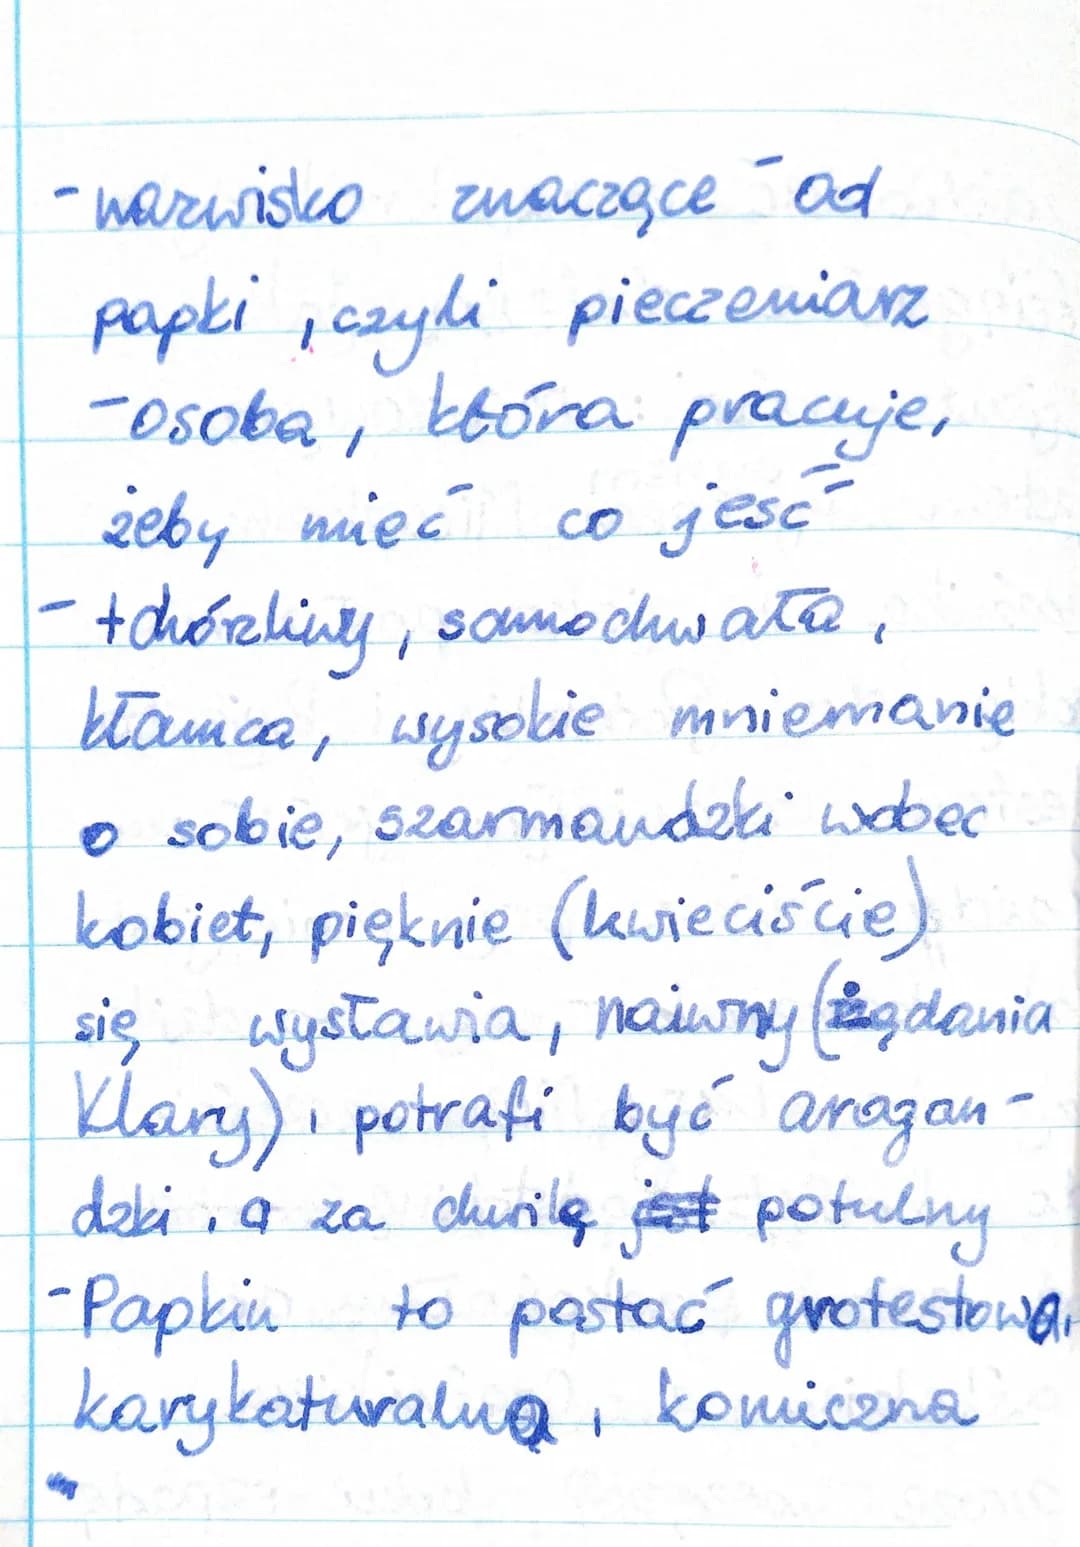 - nazwisko znaczące - od
papki, czyli pieczeniarz
- osoba, która pracuje,
żeby mieć co jeść
- tchórzliwy, samochwała,
kłamca, wysokie mniemanie
o sobie, szarmandzki wobec
kobiet, pięknie (kwieciście)
się wysławia, naiwny (żądania
Klary), potrafi być arogan-
dzki, a za chwilę potulny
- Papkin to postać grotestowa,
karykaturalna, komiczna